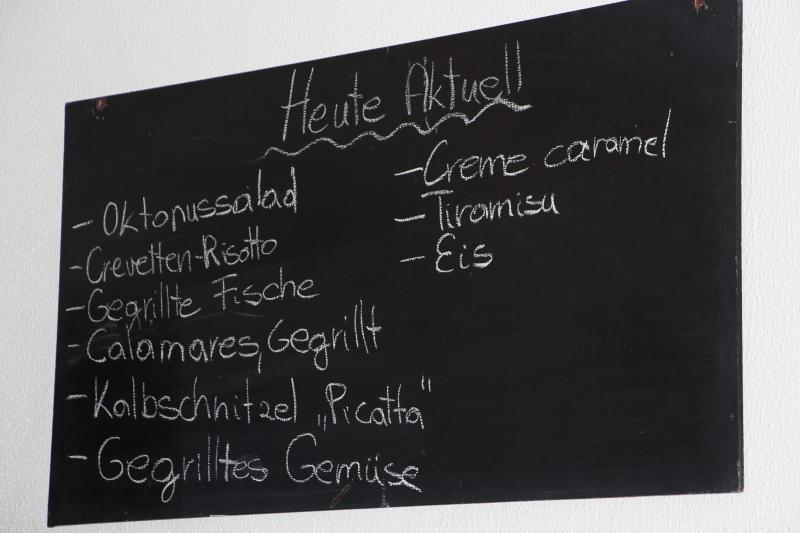 Heute Aktuell
- Oktopussalad
- Crevetten-Risotto
- Gegrillte Fische
- Calamares, Gegrillt
- Kalbschnitzel „Picatta"
- Gegrilltes Gemüse
- Creme caramel
- Tiramisu
- Eis